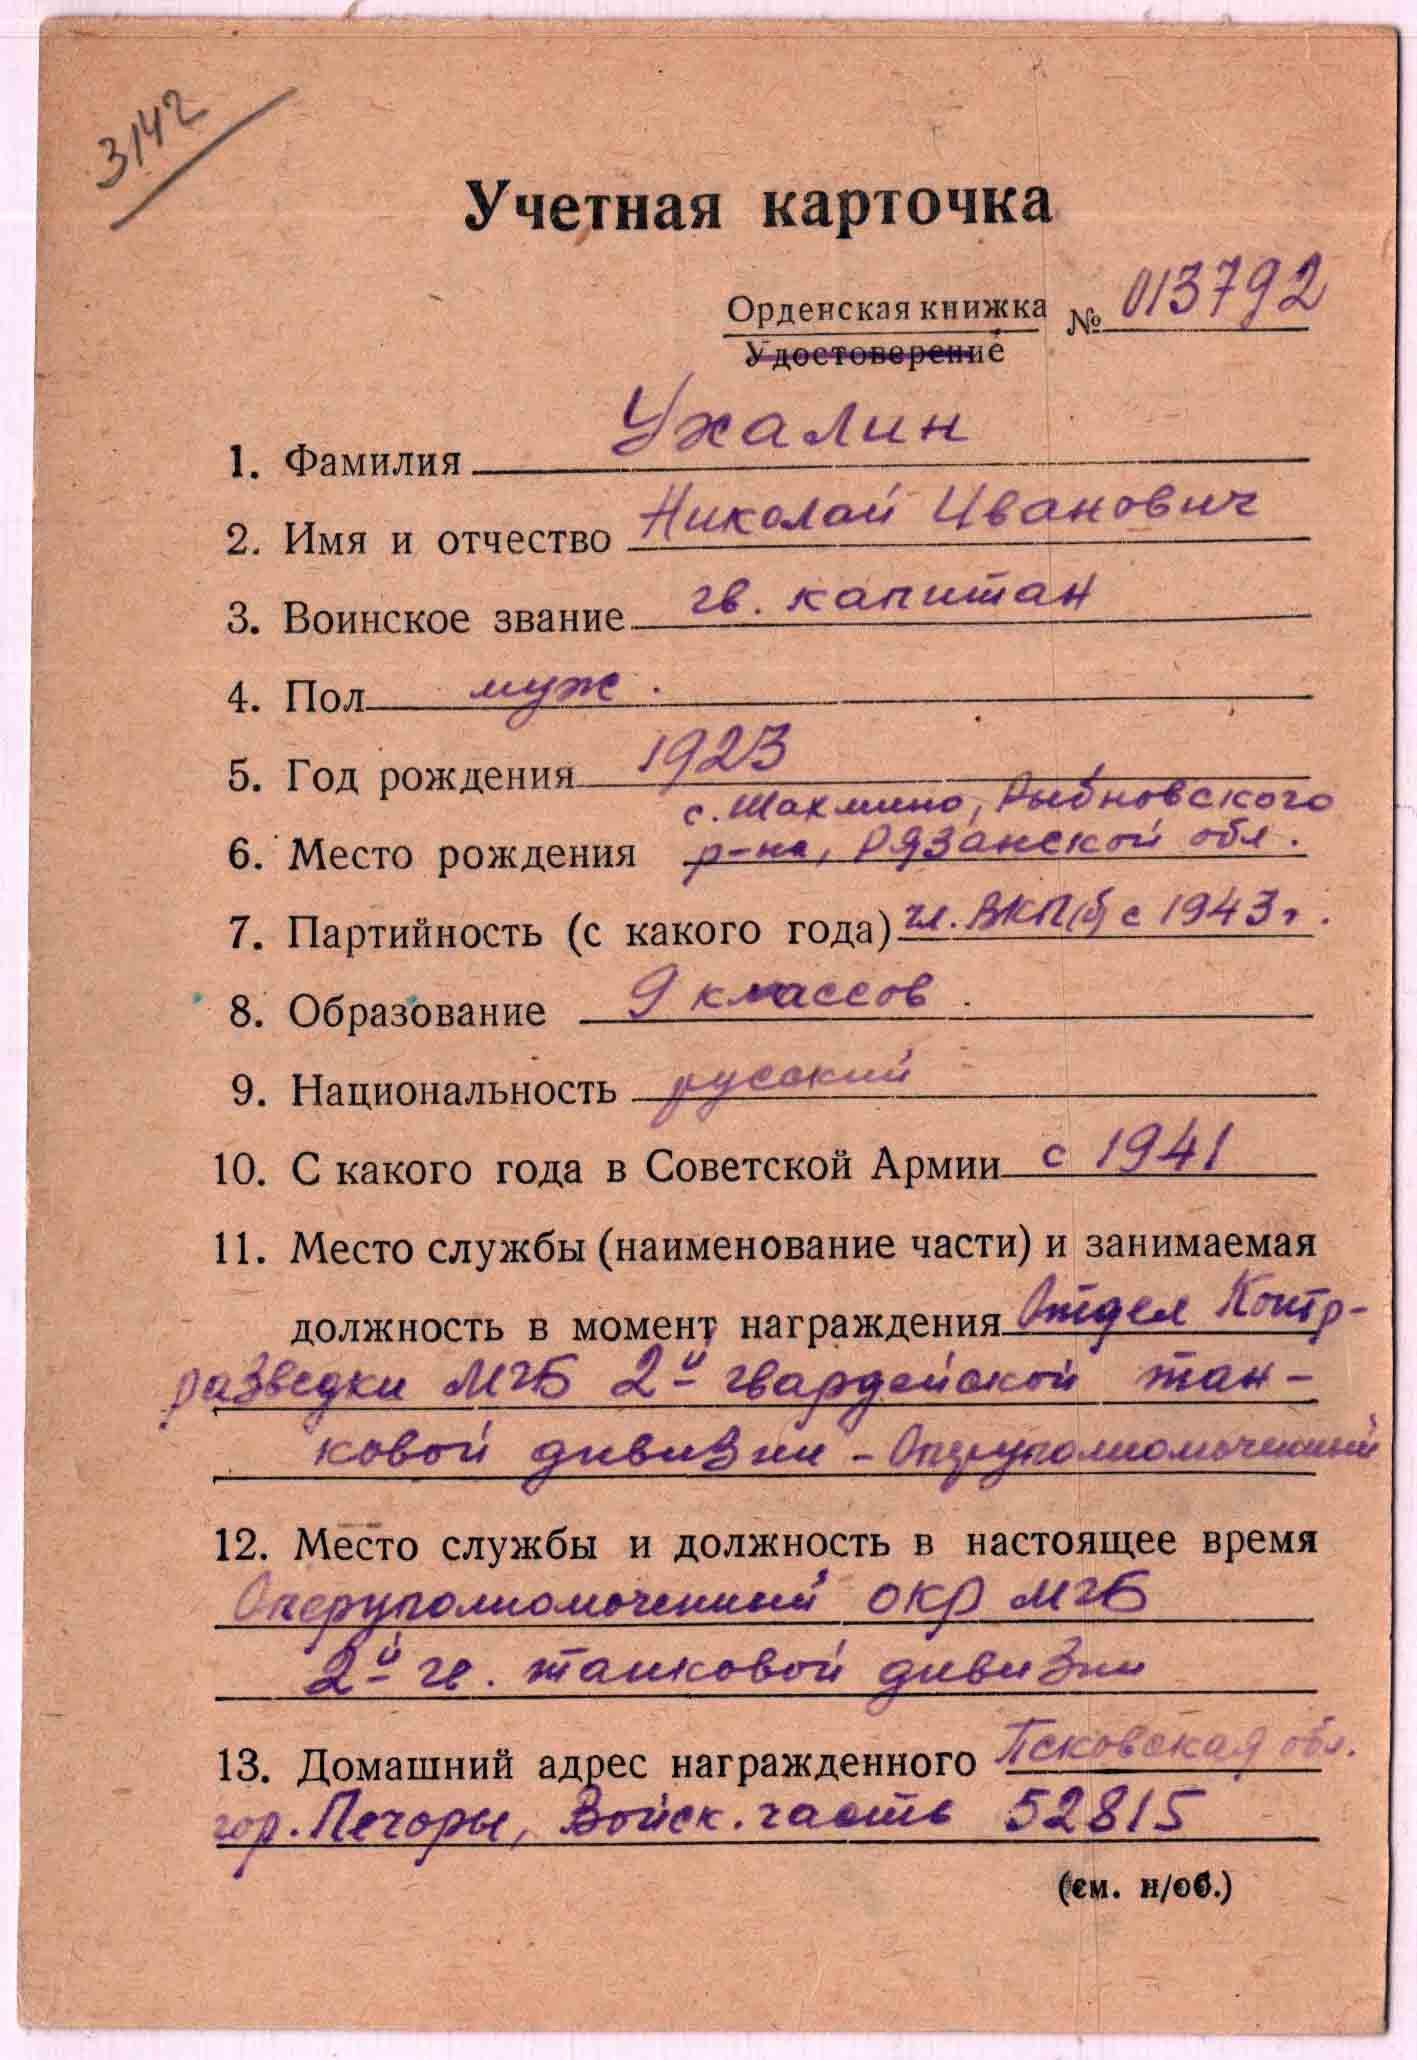 3142
Учетная карточка
Орденская книжка № 013792
Удостоверение
1. Фамилия Ухалин
2. Имя и отчество Николай Иванович
3. Воинское звание гв. капитан
4. Пол муж.
5. Год рождения 1923
с. Шахмино, Рыбновского
6. Место рождения р-на, Рязанской обл.
7. Партийность (с какого года) чл. ВКП(б) с 1943 г.
8. Образование 9 классов
9. Национальность русский
10. С какого года в Советской Армии с 1941
11. Место службы (наименование части) и занимаемая
должность в момент награждения Отдел Контр-
разведки МГБ 2й гвардейской тан-
ковой дивизии - Оперуполномоченный
12. Место службы и должность в настоящее время
Оперуполномоченный ОКР МГБ
2й гв. танковой дивизии
13. Домашний адрес награжденного Псковская обл.
гор. Печоры, Войск. часть 52815
(см. н/об.)